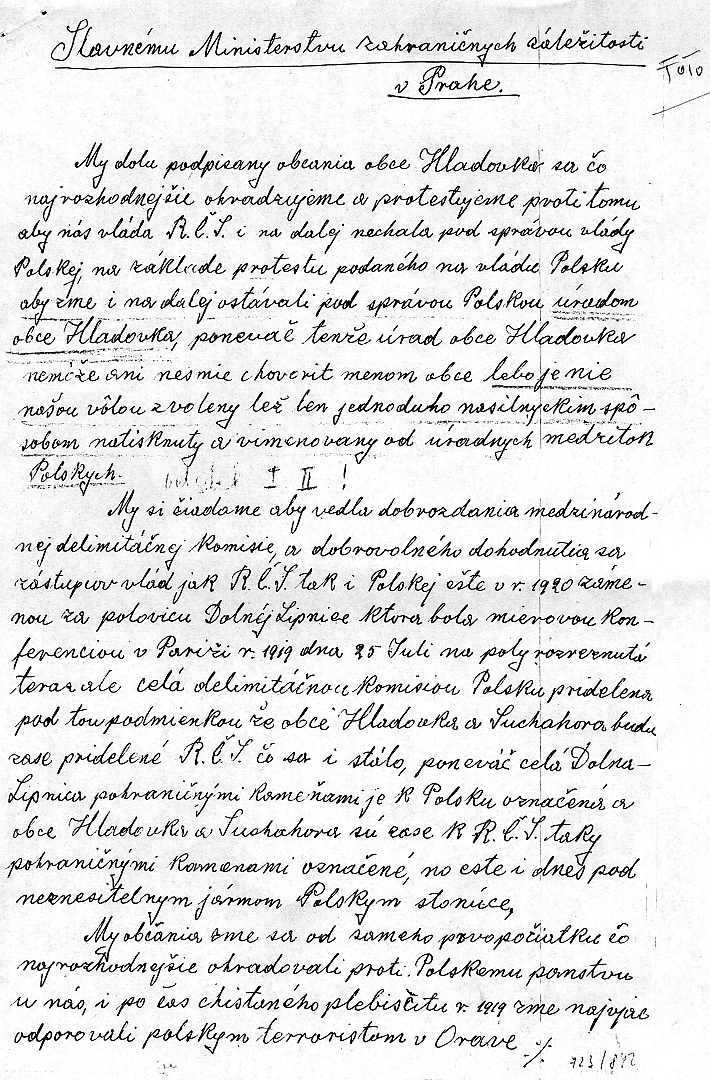 Slavnému Ministerstvu zahraničnych záležitosti
v Prahe.
My dolu podpisany obcania obce Hladovka sa čo
najrozhodnejšie ohradzujeme a protestujeme proti tomu
aby nás vláda R.Č.S. i na dalej nechala pod správou vlády
Polskej, na základe protestu podaného na vládu Polsku
aby zme i na dalej ostávali pod správou Polskou úradom
obce Hladovka, ponevač tenže úrad obce Hladovka
nemôže ani nesmie hovorit menom obce lebo je nie
našou vôlou zvoleny lež len jednoducho nasilnyckim spô-
sobom natisknuty a vimenovany od úradnych medzitok
Polskych. I II !
My si žiadame aby vedla dobrozdania medzinárod-
nej delimitáčnej komisie, a dobrovolného dohodnutia sa
zástupcov vlád jak R.Č.S. tak i Polskej ešte v r. 1920 záme-
nou za polovicu Dolnéj Lipnice ktora bola mierovou kon-
ferenciou v Pariži r. 1919 dna 25 Juli na poly rozreznutá
teraz ale celá delimitáčnou komisiou Polsku pridelena
pod tou podmienkou že obce Hladovka a Suchahora budu
zase pridelené R.Č.S. čo sa i stálo, poneváč celá Dolna-
Lipnica pohraničnými kameňami je k Polsku označená a
obce Hladovka a Suchahora sú zase k R.Č.S. taky
pohraničnými kamenami označené, no este i dnes pod
neznesitelnym jármom Polskym stonúce,
My občania zme sa od sameho prvopočiatku čo
najrozhodnejšie ohradovali proti Polskemu panstvu
u nás, i po čas chistaného plebiscitu r. 1919 zme najviac
odporovali polskym terroristom v Orave ·/.
723/892